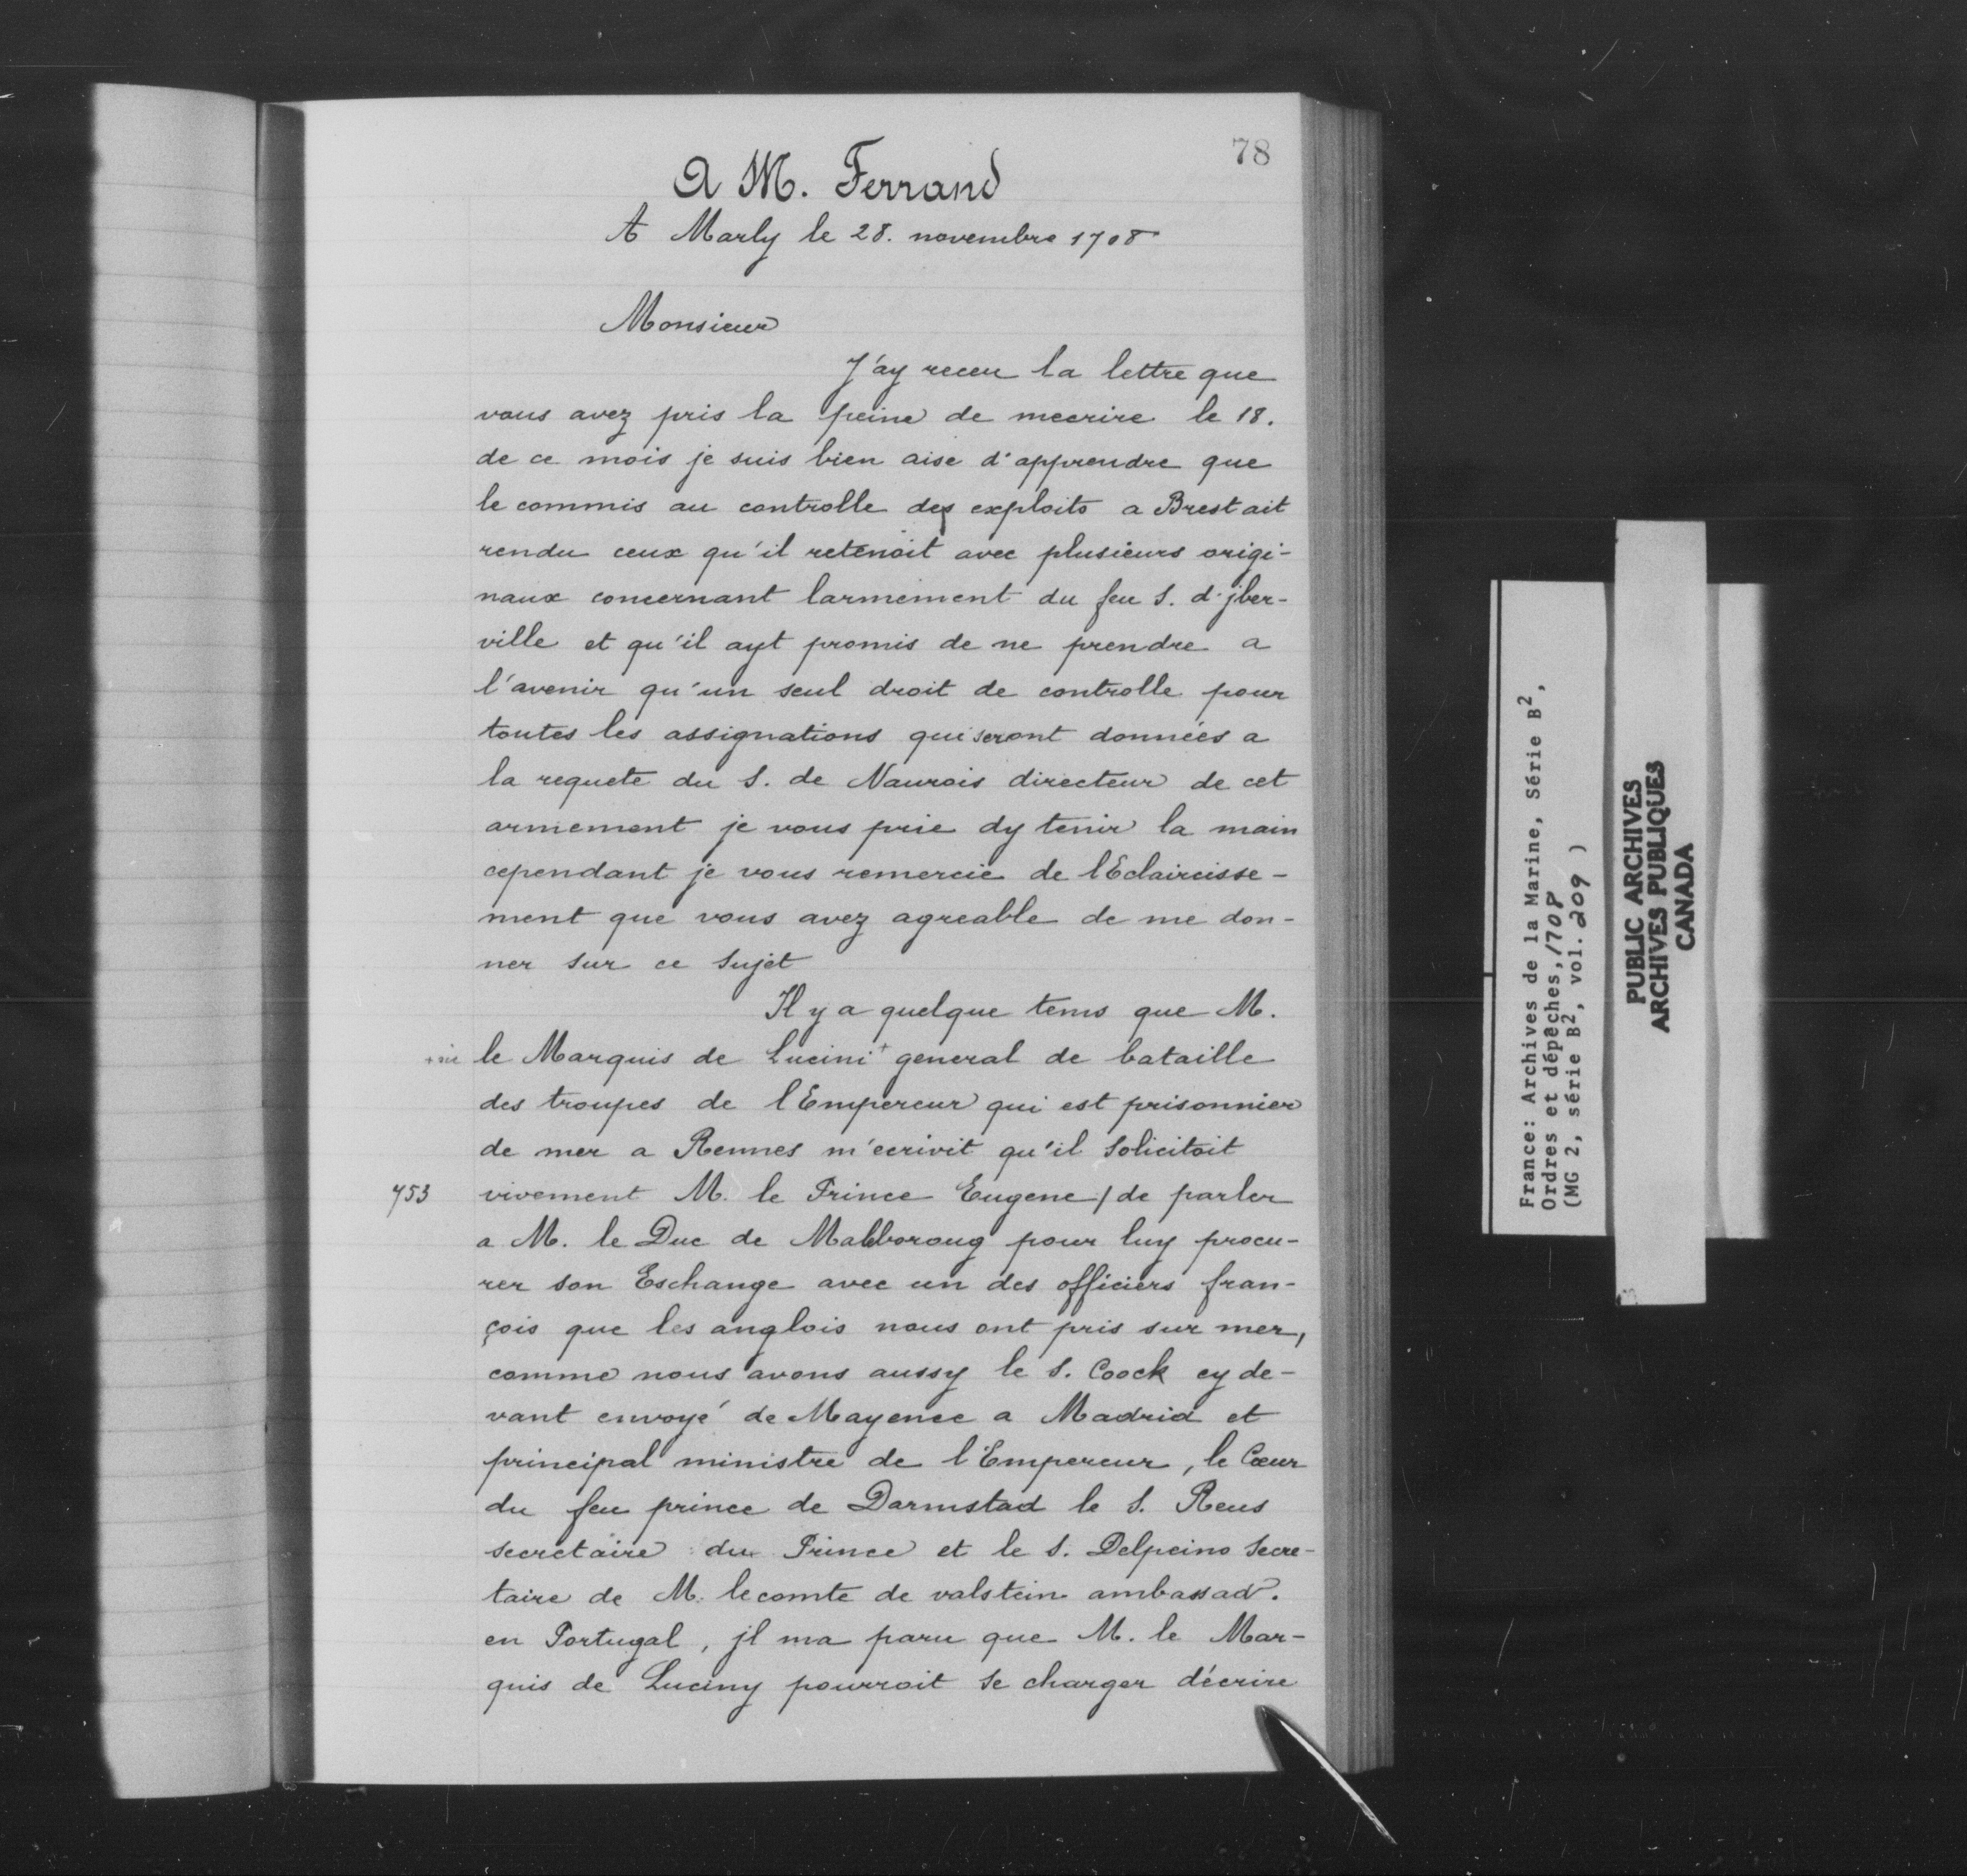 78
A M. Ferrand
A Marly le 28. novembre 1708
Monsieur
J'ay receu la lettre que
vous avez pris la peine de mecrire le 18.
de ce mois je suis bien aise d'apprendre que
le commis au controlle des exploits a Brest ait
rendu ceux qu'il retenoit avec plusieurs origi-
naux concernant larmement du feu S. d'jber-
ville et qu'il ayt promis de ne prendre a
l'avenir qu'un seul droit de controlle pour
toutes les assignations qui seront données a
la requete du S. de Naurois directeur de cet
armement je vous prie dy tenir la main
cependant je vous remercie de lEclaircisse-
ment que vous avez agreable de me don-
ner sur ce sujet
Il y a quelque tems que M.
+ sic le Marquis de Lucini + general de bataille
des troupes de lEmpereur qui est prisonnier
de mer a Rennes m'ecrivit qu'il solicitoit
753 vivement M. le Prince Eugene / de parler
a M. le Duc de Malboroug pour luy procu-
rer son Eschange avec un des officiers fran-
çois que les anglois nous ont pris sur mer,
comme nous avons aussy le S. Coock cy de-
vant envoyé de Mayence a Madrid et
principal ministre de l'Empereur, le Cœur
du feu prince de Darmstad le S. Reus
secretaire du Prince et le S. Delpeino secre-
taire de M. lecomte de valstein ambassad.
en Portugal, jl ma paru que M. le Mar-
quis de Luciny pourroit se charger décrire
France: Archives de la Marine, Série B2,
Ordres et dépêches, 1708
(MG 2, série B2, vol. 209 )
PUBLIC ARCHIVES
ARCHIVES PUBLIQUES
CANADA